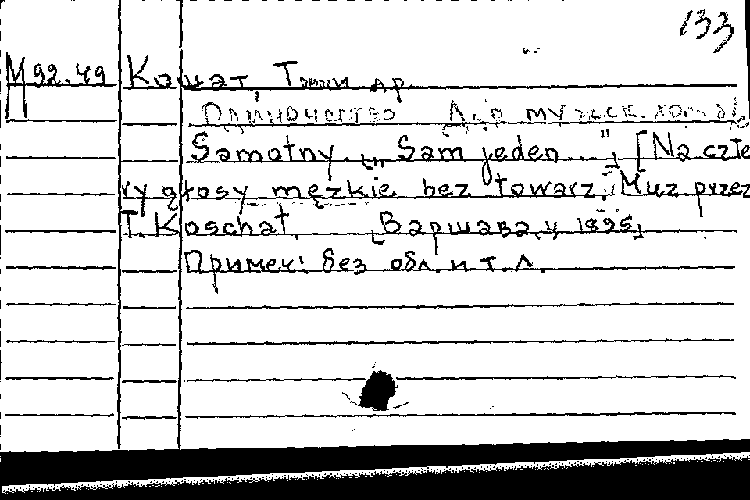 133
М 92.49 Кошат, Томи др.
Одиночество Для мужск. хора
Samotny. [„Sam jeden..."; [Na czte
ry głosy męzkie bez towarz. Muz przez
T. Koschat. [Варшава, 1895]
Примеч: без обл. и т. л.